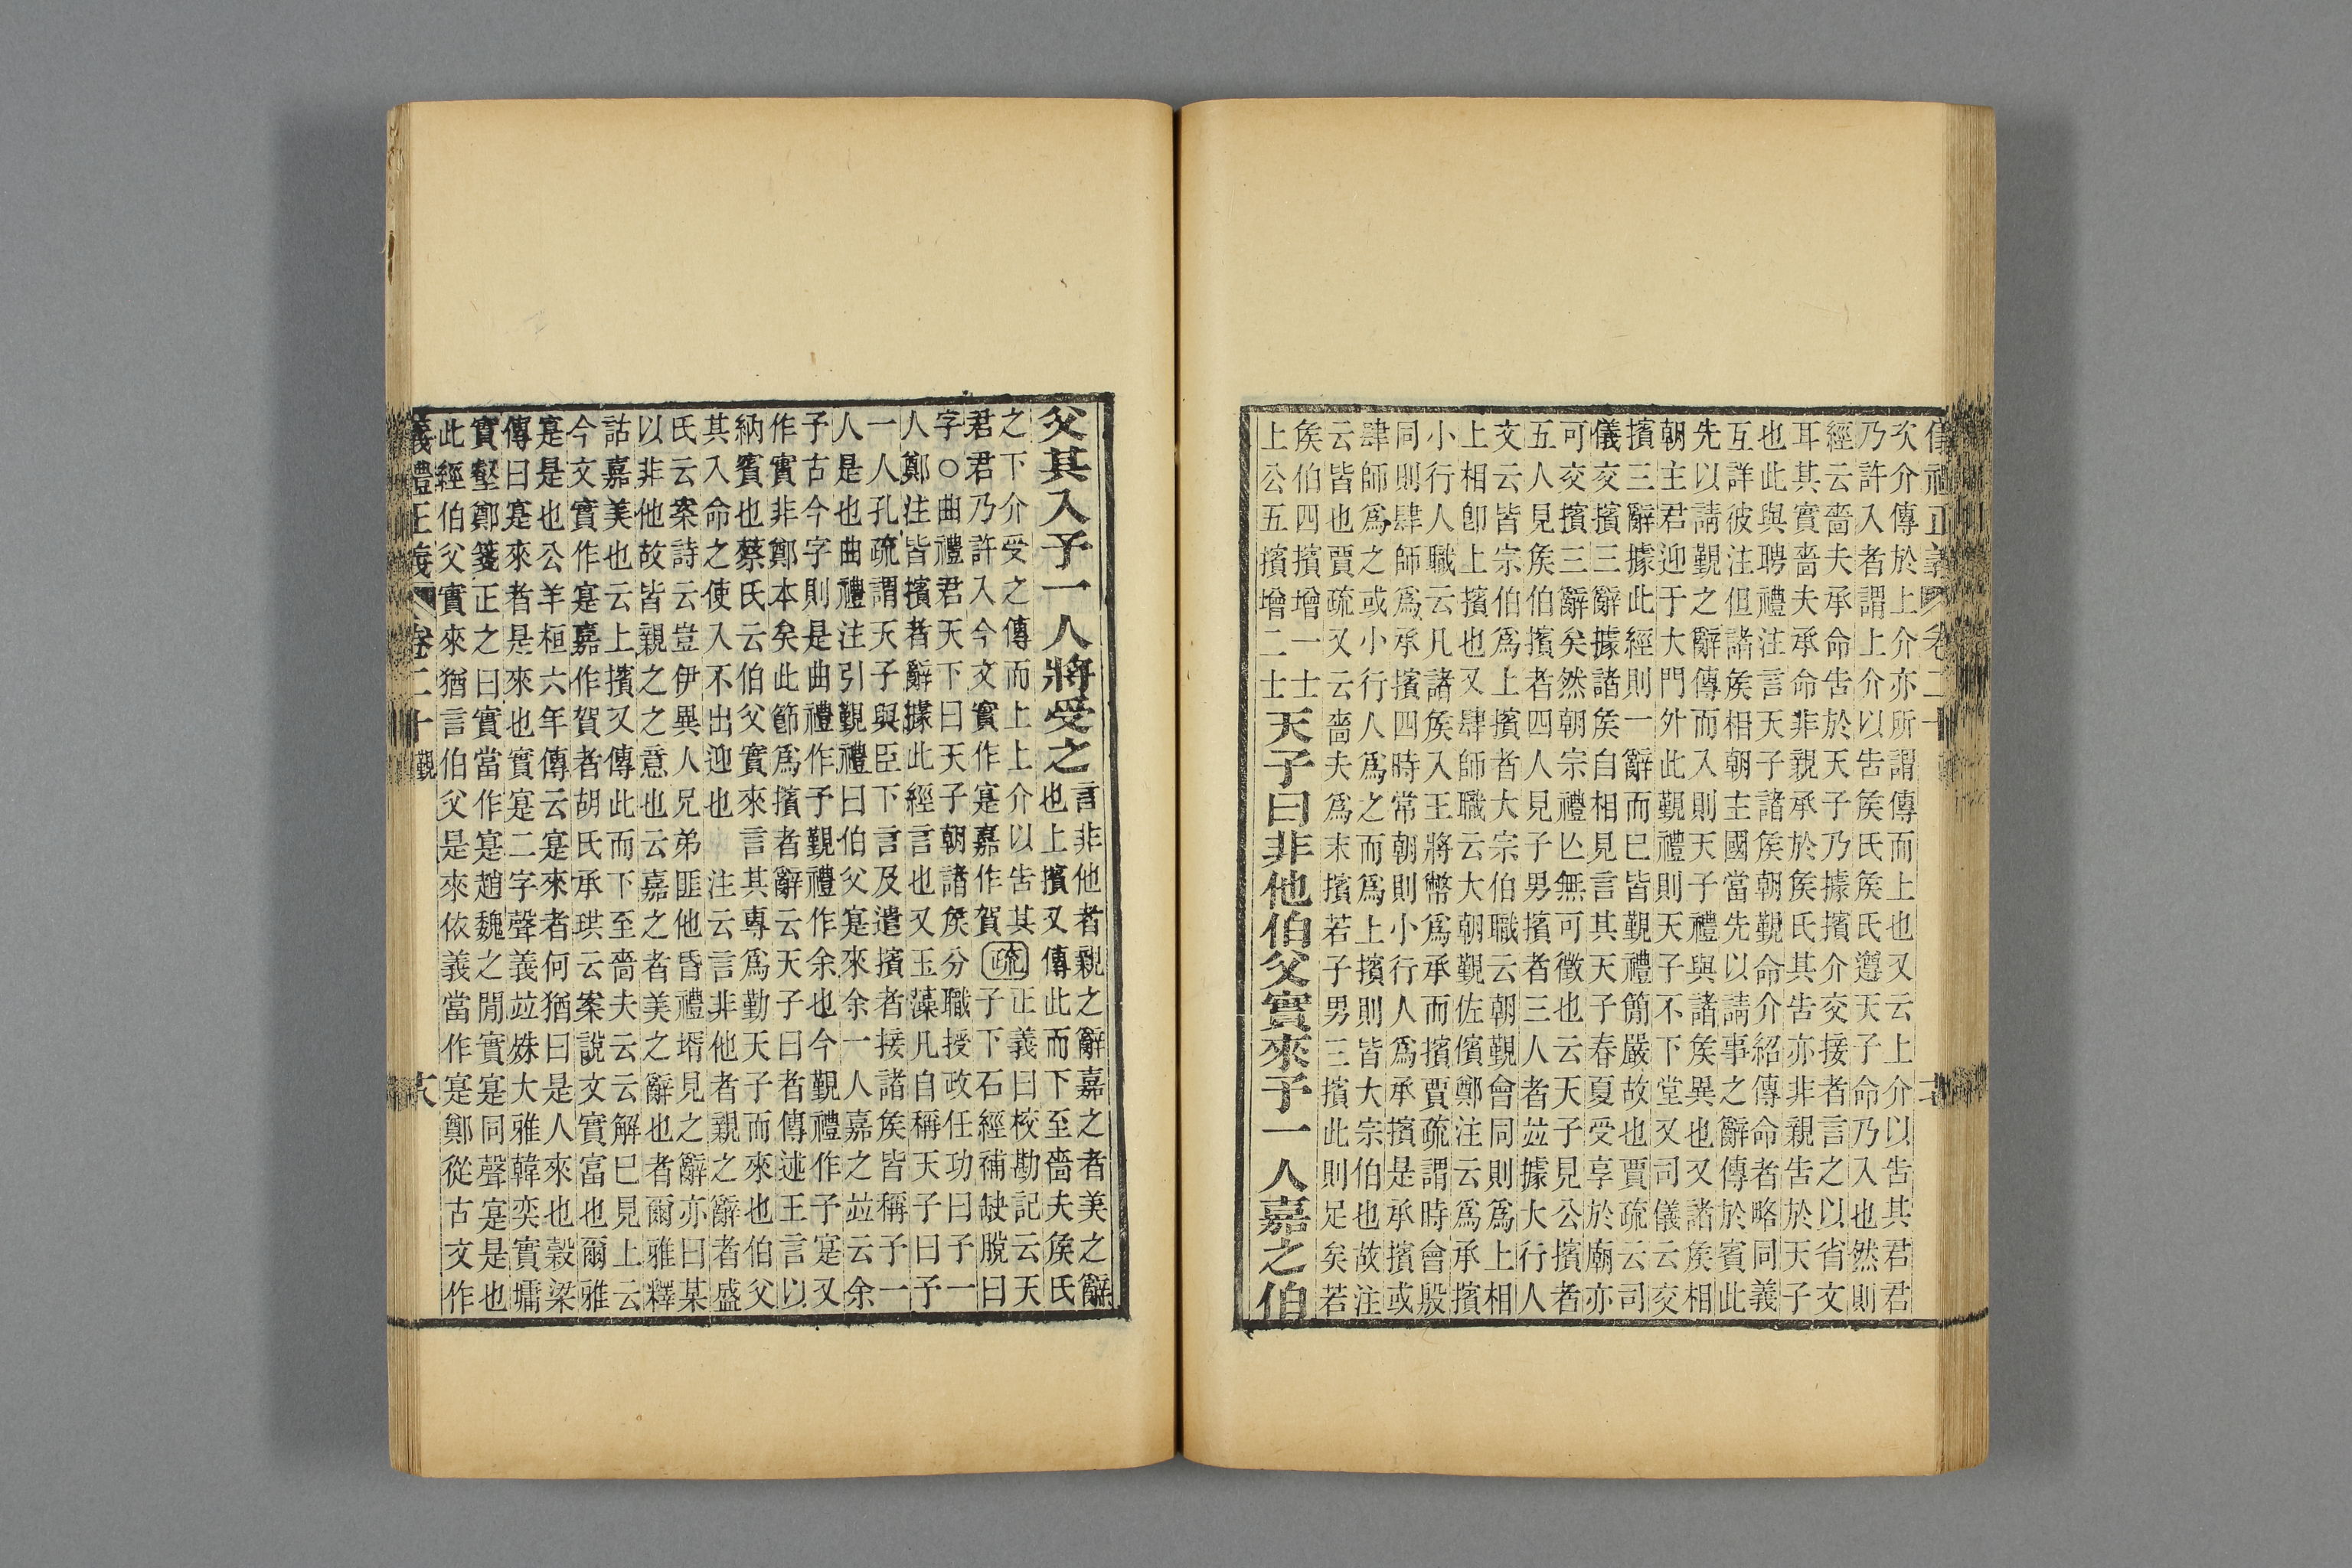 儀禮正義 卷二十
次介傳於上介亦所謂傳而上也又云上介以告其君君
乃許入者謂上介以告矦氏矦氏遵天子命乃入也然則
經云嗇夫承命告於天子乃據擯介交接者言之以省文
耳其實嗇夫承命非親承於矦氏其告亦非親告於天子
也此與聘禮注言天子諸矦朝覲命介紹傳命者略同義
互詳彼注但諸矦相朝主國當先以請事之辭傳於賓此
先以請覲之辭傳而入則天子禮與諸矦異也又諸矦相
朝主君迎于大門外此覲禮則天子不下堂又司儀云交
擯三辭據此經則一辭而巳皆覲禮簡嚴故也賈疏云司
儀交擯三辭據諸矦自相見言其天子春夏受享於廟亦
可交擯三辭矣然朝宗禮亾無可徵也云天子見公擯者
五人見矦伯擯者四人見子男擯者三人者竝據大行人
文云皆宗伯爲上擯者大宗伯職云朝覲會同則爲上相
上相卽上擯也又肆師職云大朝覲佐儐鄭注云爲承擯
小行人職云凡諸矦入王將幣爲承而擯賈疏謂時會殷
同則肆師爲承擯四時常朝則小行人爲承擯是承擯或
肆師爲之或小行人爲之而爲上擯則皆大宗伯也故注
云皆也賈疏又云嗇夫爲末擯若子男三擯此則足矣若
矦伯四擯增一士
上公五擯增二士
天子曰非他伯父實來予一人嘉之伯
父其入予一人將受之
言非他者親之辭嘉之者美之辭
也上擯又傳此而下至嗇夫矦氏
之下介受之傳而上上介以告其
君君乃許入今文實作寔嘉作賀
疏
正義曰校勘記云天
子下石經補缺脫曰
字○曲禮君天下曰天子朝諸矦分職授政任功曰予一
人鄭注皆擯者辭據此經言也又玉藻凡自稱天子曰予
一人孔疏謂天子與臣下言及遣擯者接諸矦皆稱予一
人是也曲禮注引覲禮曰伯父寔來余一人嘉之竝云余
予古今字則是曲禮作予覲禮作余也今覲禮作予寔又
作實非鄭本矣此節爲擯者辭云天子曰者傳述王言以
納賓也蔡氏云伯父實來言其專爲勤天子而來也伯父
其入命之使入不出迎也 注云言非他者親之辭者盛
氏云案詩云豈伊異人兄弟匪他昏禮壻見之辭亦曰某
以非他故皆親之之意也云嘉之者美之辭也者爾雅釋
詁嘉美也云上擯又傳此而下至嗇夫云云解巳見上云
今文實作寔嘉作賀者胡氏承珙云案說文實富也爾雅
寔是也公羊桓六年傳云寔來者何猶曰是人來也穀梁
傳曰寔來者是來也實寔二字聲義竝殊大雅韓奕實墉
實壑鄭箋正之曰實當作寔趙魏之閒實寔同聲寔是也
此經伯父實來猶言伯父是來依義當作寔鄭從古文作
義禮正義 卷二十 覲